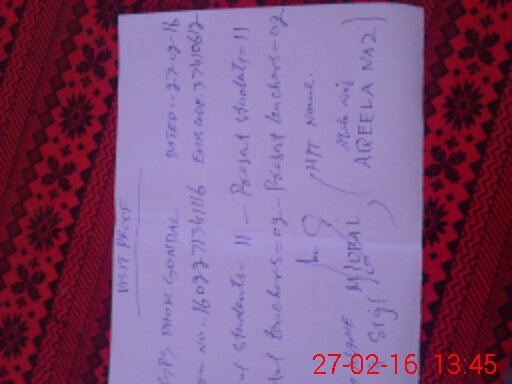 VISIT PROOF
GPS DHOK GONDAL DATED:- 27-02-16
No:- 16022271341116 EMIS CODE 37410612
students = 11 - Present students = 11
Teachers = 02 - Present Teachers = 02
H/T Name
M/IQBAL
AQEELA NAZ
Sig
27-02-16 13:45